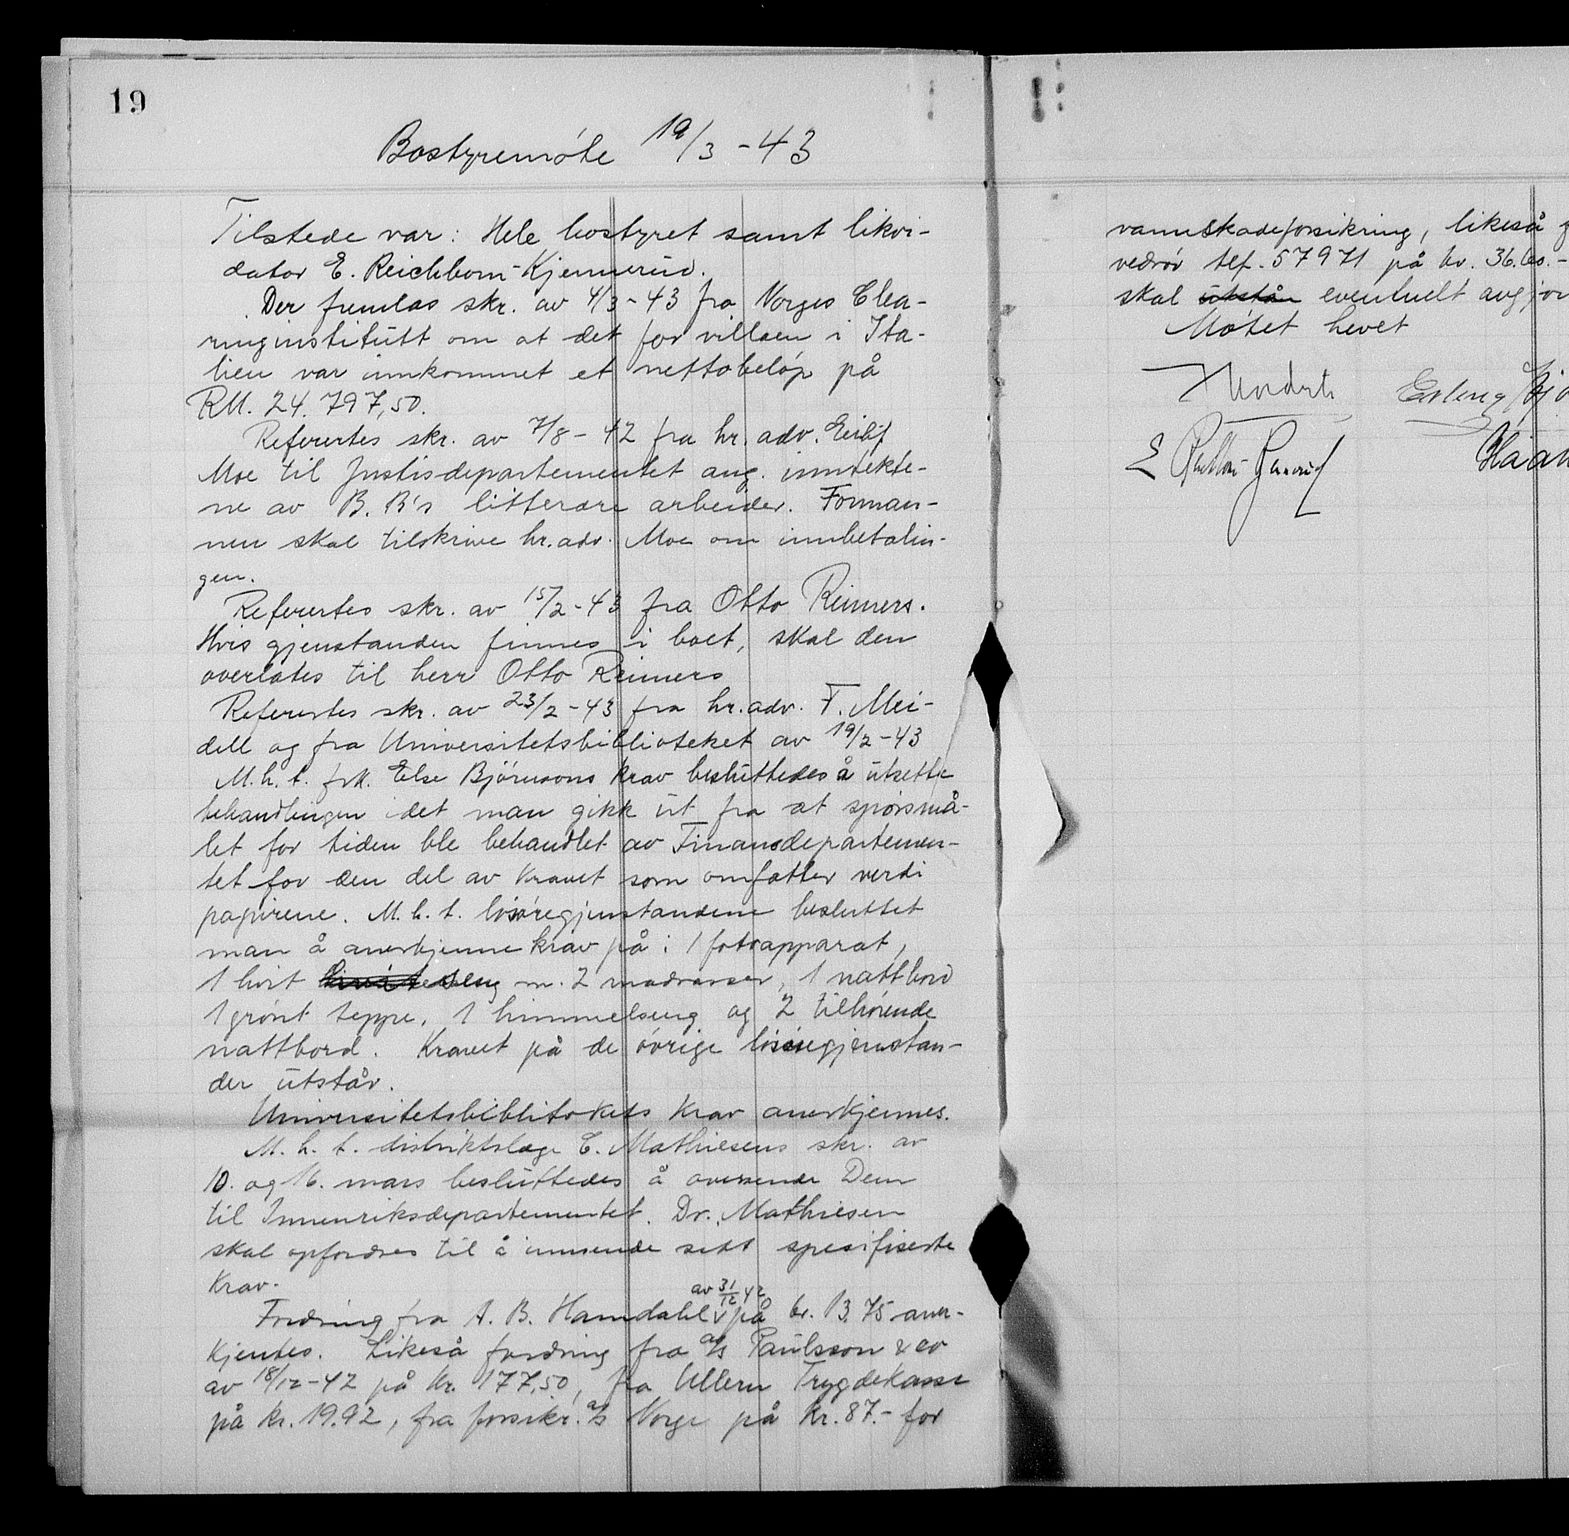 19
Bostyremöte 19/3 - 43
Tilstede var: Hele bostyret samt likvi-
dator E. Reichborn-Kjennerud.
Der fremlas skr. av 4/3 - 43 fra Norges Clea-
ringinstitutt om at det for villaen i Ita-
lien var innkommet et nettobelöp på
RM. 24.797,50.
Referertes skr. av 7/8 - 42 fra hr. adv. Eilif
Moe til Justisdepartementet ang. inntekte-
ne av B.B's litterære arbeider. Forman-
nen skal tilskrive hr. adv. Moe om innbetalin-
gen.
Referertes skr. av 15/2 - 43 fra Otto Reimers.
Hvis gjenstanden finnes i boet, skal den
overlates til herr Otto Reimers
Referertes skr. av 23/2 - 43 fra hr. adv. F. Mei-
dell og fra Universitetsbiblioteket av 19/2 - 43
M.h.t. frk. Else Björnsons krav besluttedes å utsette
behandlingen idet man gikk ut fra at spörsmå-
let for tiden ble behandlet av Finansdepartemen-
tet for den del av kravet som omfatter verdi
papirene. M.h.t. lösöregjenstandene besluttet
man å anerkjenne krav på: 1 fotoapparat,
1 hvit seng m. 2 madrasser, 1 nattbord
1 grönt teppe, 1 himmelseng og 2 tilhörende
nattbord. Kravet på de övrige lösöregjenstan-
der utstår.
Universitetsbibliotekets krav anerkjennes.
M.h.t. distriktslege C. Mathiesens skr. av
10. og 16. mars besluttedes å oversende dem
til Innenriksdepartementet. Dr. Mathiesen
skal opfordres til å innsende sitt spesifiserte
krav.
Fordring fra A. B. Hamdahl av 31/12 42 på kr. 13.75 aner-
kjentes. Likeså fordring fra a/s Paulsson & co
av 18/12 - 42 på kr. 177,50, fra Ullern Trygdekasse
på kr. 19.92, fra forsikr. a/s Norge på kr. 87.- for
vannskadeforsikring, likeså
vedrör tlf. 57971 på kr. 36.60.-
skal utstår eventuelt avgjör
Mötet hevet
Erling
E Reichborn-Kjennerud